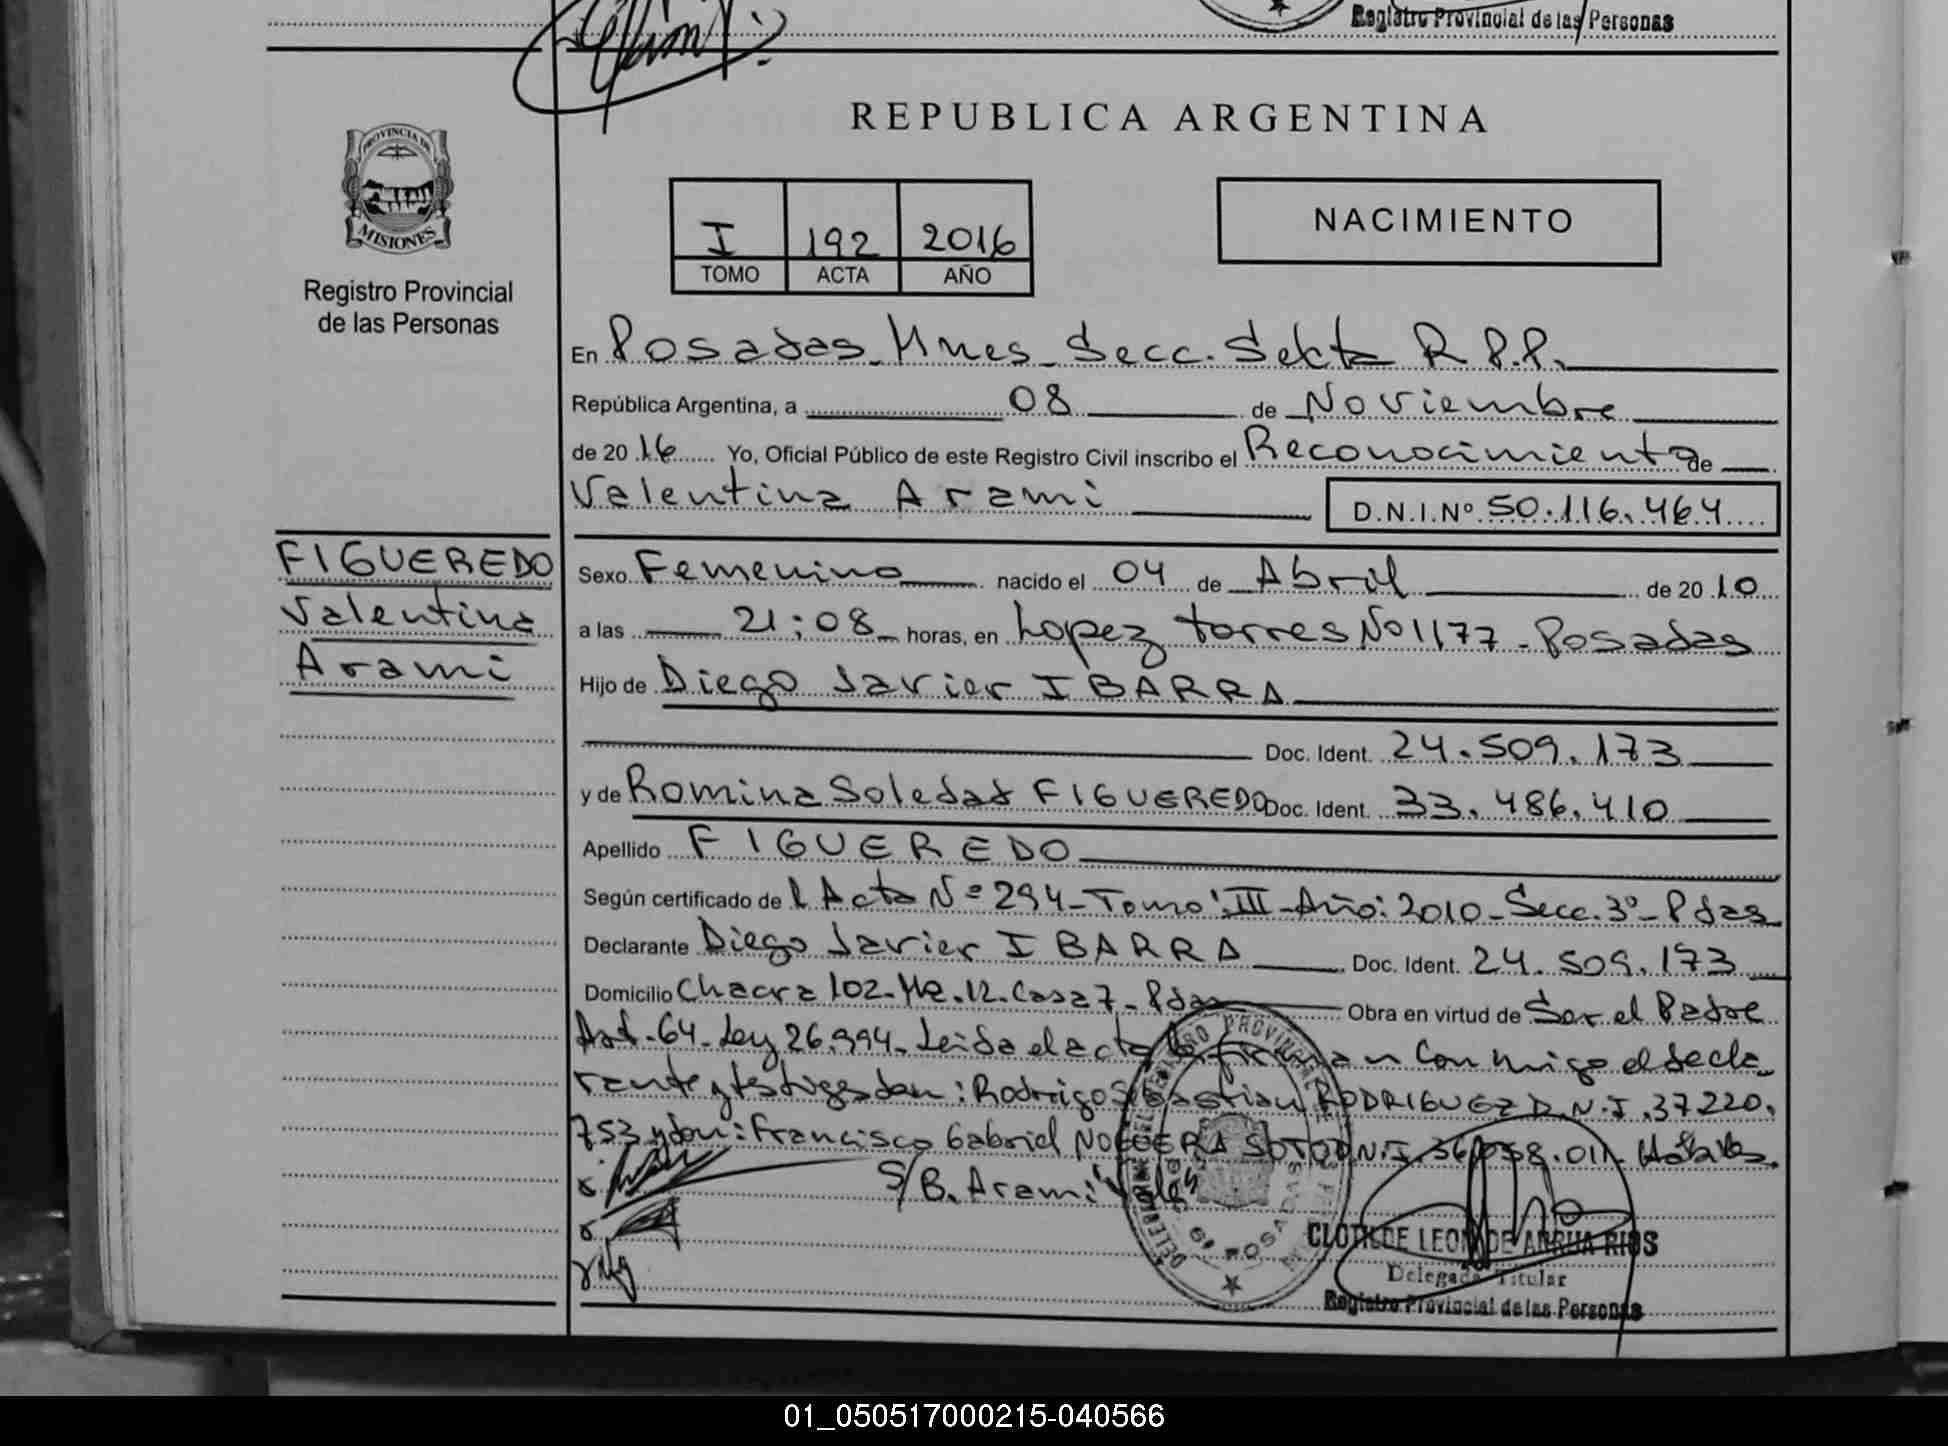 Registro Provincial de las Personas
REPUBLICA ARGENTINA
PROVINCIA DE
MISIONES
Registro Provincial
de las Personas
I 192 2016
TOMO ACTA AÑO
NACIMIENTO
En Posadas Mnes Secc. Sexta R.P.P.
República Argentina, a 08 de Noviembre
de 20 16 Yo, Oficial Público de este Registro Civil inscribo el Reconocimiento de
Valentina Arami D.N.I.Nº 50.116.464
FIGUEREDO
Valentina
Arami
Sexo Femenino nacido el 04 de Abril de 20 10
a las 21:08 horas, en Lopez torres Nº 1177 - Posadas
Hijo de Diego Javier IBARRA
Doc. Ident. 24.509.173
y de Romina Soledad FIGUEREDO Doc. Ident. 33.486.410
Apellido FIGUEREDO
Según certificado de l Acta Nº 294 - Tomo: III - Año: 2010 - Secc. 3º - Pdas
Declarante Diego Javier IBARRA Doc. Ident. 24.509.173
Domicilio Chacra 102 - Mz. 12 - Casa 7 - Pdas Obra en virtud de Ser el Padre
Art. 64 - Ley 26.994 - Leida el acta la firman Conmigo el decla-
rante y testigos don: Rodrigo Sebastian RODRIGUEZ D.N.I. 37220.
753 y don: Francisco Gabriel NOGUERA SOTO D.N.I. 36.058.011
S/B. Arami "Vale"
CLOTILDE LEONOR DE ARRUA RIOS
Delegada Titular
Registro Provincial de las Personas
01_050517000215-040566